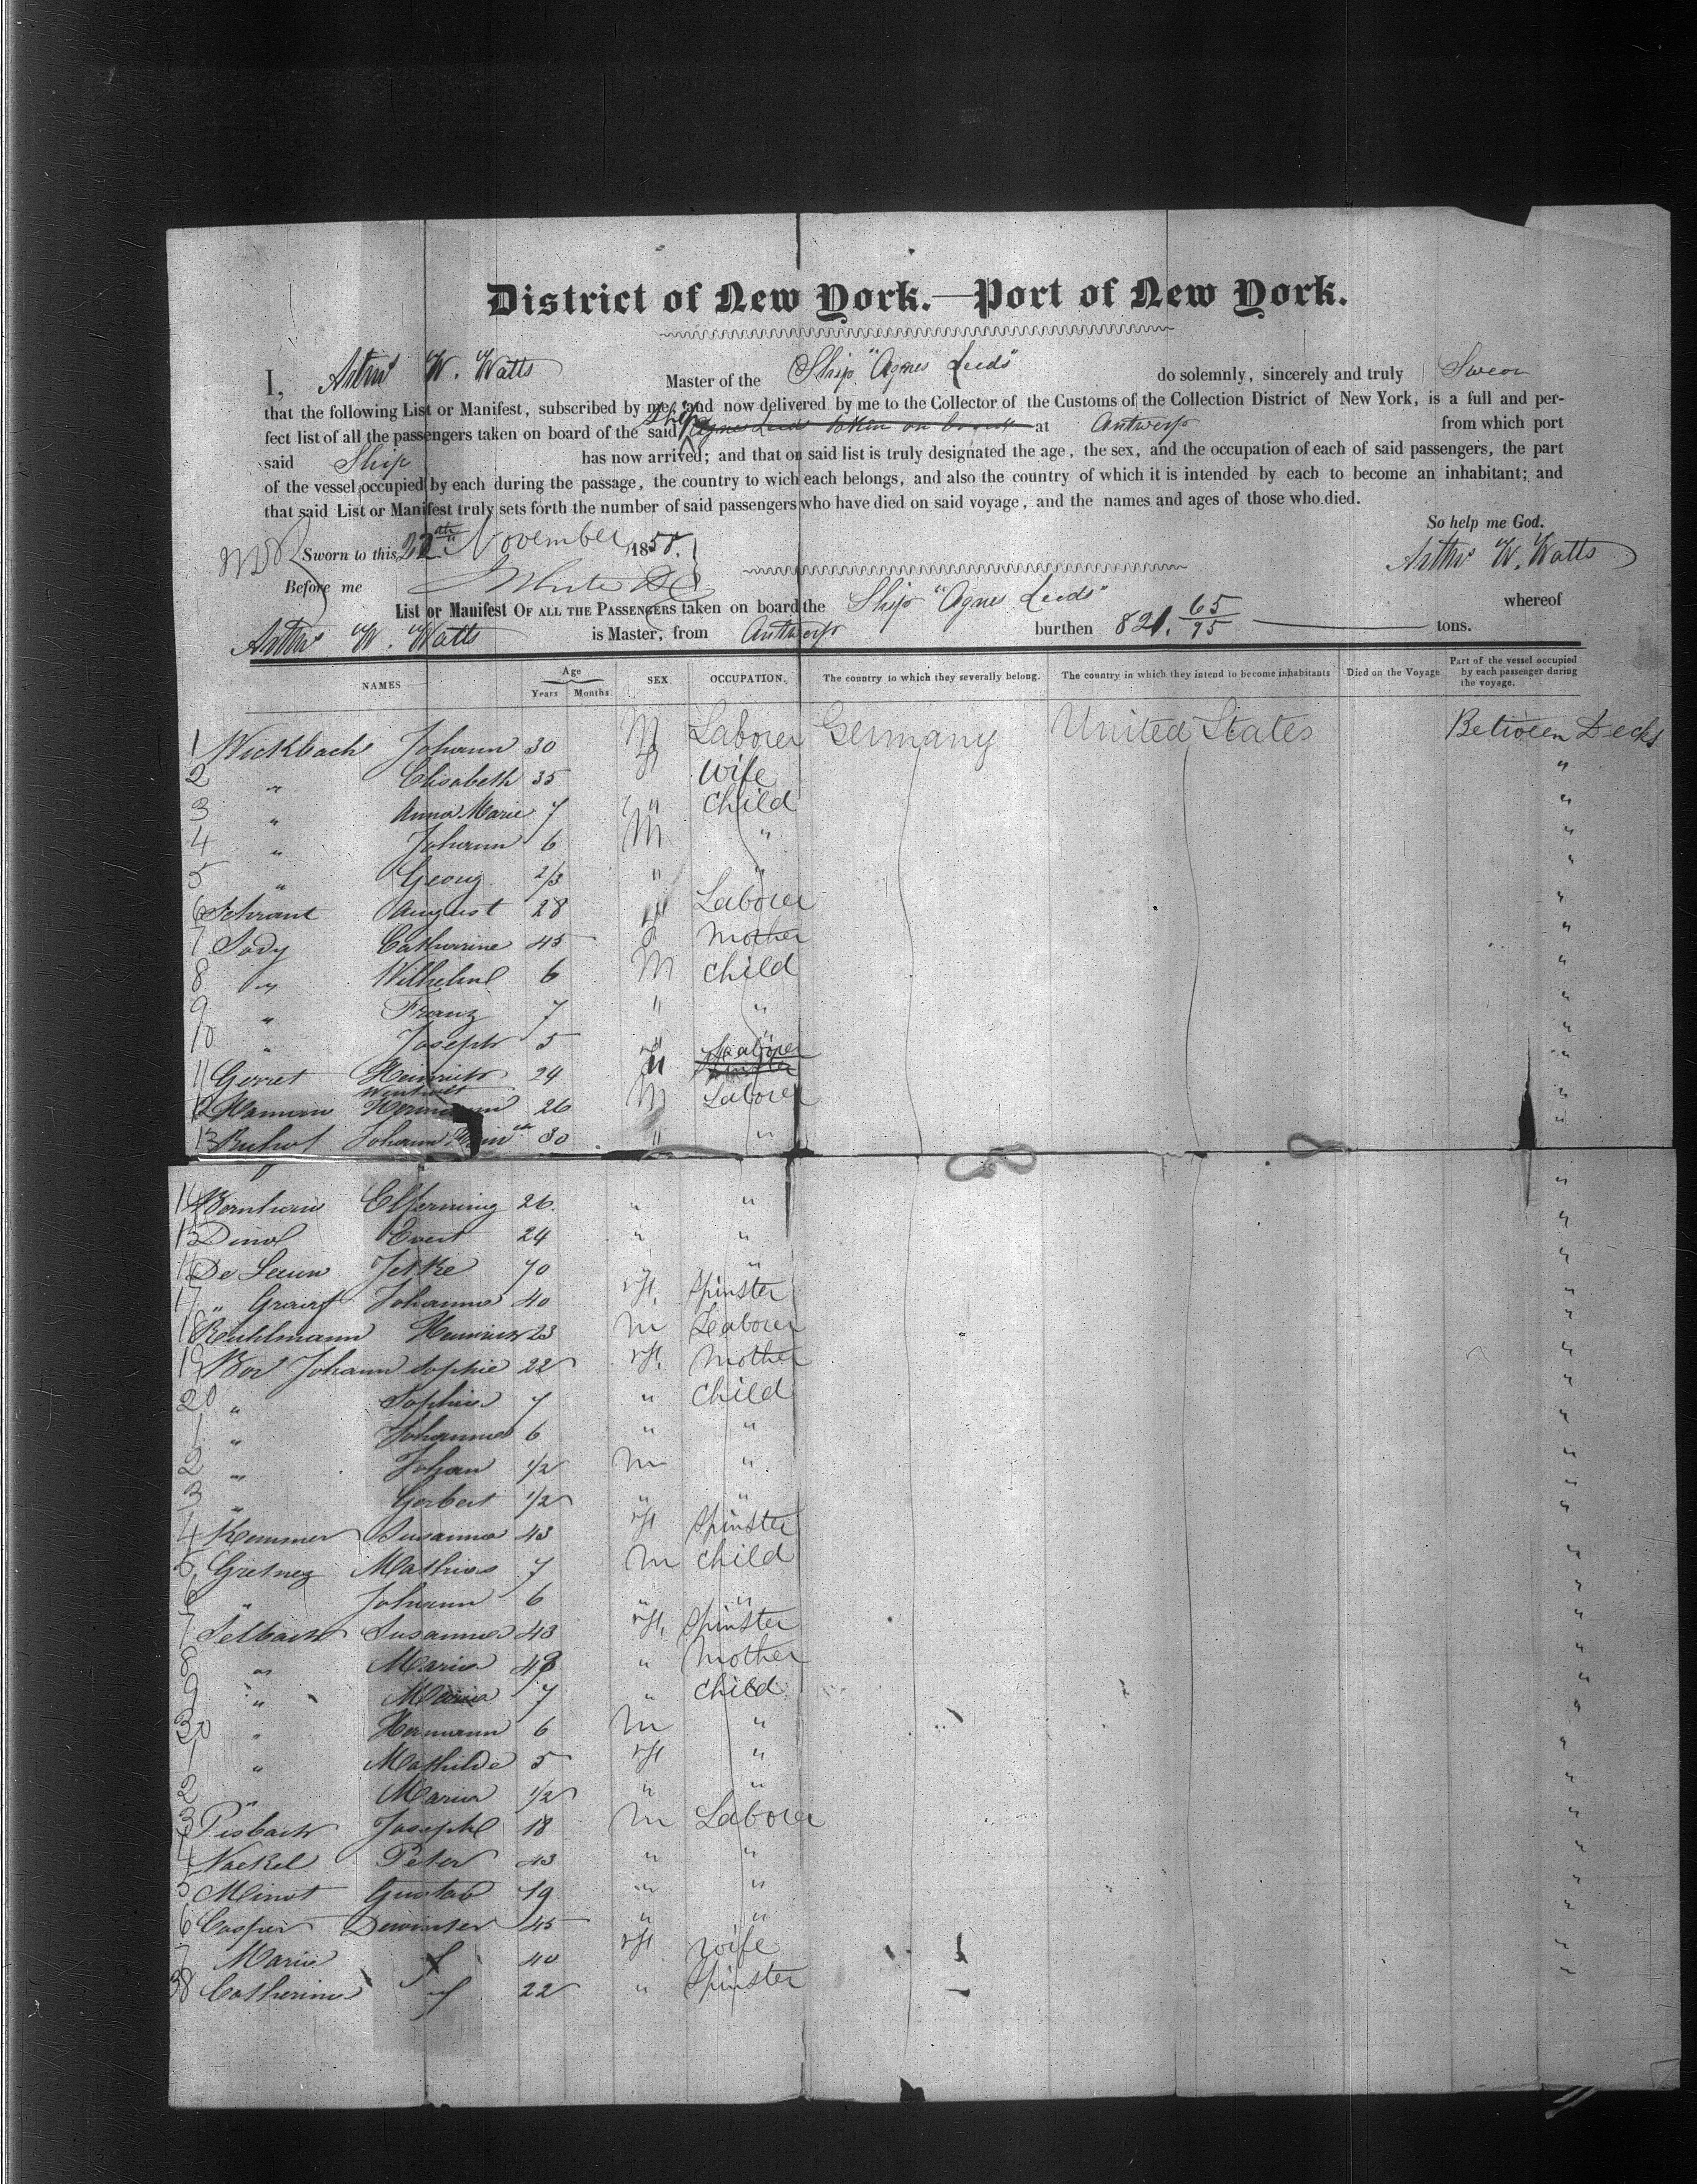 District of New York.—Port of New York.
I, Arthr W. Watts Master of the Ship "Agnes Leeds" do solemnly, sincerely and truly Swear
that the following List or Manifest, subscribed by me, and now delivered by me to the Collector of the Customs of the Collection District of New York, is a full and per-
fect list of all the passengers taken on board of the said Ship Agnes Leeds taken on board at Antwerp from which port
said Ship has now arrived; and that on said list is truly designated the age, the sex, and the occupation of each of said passengers, the part
of the vessel occupied by each during the passage, the country to wich each belongs, and also the country of which it is intended by each to become an inhabitant; and
that said List or Manifest truly sets forth the number of said passengers who have died on said voyage, and the names and ages of those who died.
So help me God.
Sworn to this 22th November 1858. Arthr W. Watts
Before me
List or Manifest OF ALL THE PASSENGERS taken on board the Ship "Agnes Leeds" whereof
Arthr W. Watts is Master, from Antwerp burthen 821. 65/95 tons.
NAMES Age Years Months SEX OCCUPATION. The country to which they severally belong. The country in which they intend to become inhabitants Died on the Voyage Part of the vessel occupied by each passenger during the voyage.
1 Wickbach Johann 30 M Laborer Germany United States Between Decks
2 " Elisabeth 35 F Wife "
3 " Anna Marie 7 " Child "
4 " Johann 6 M " "
5 " Georg 2/3 " " "
6 Schrant August 28 " Laborer "
7 Jody Catharine 45 F Mother "
8 " Wilhelm 6 M Child "
9 " Franz 7 " " "
10 " Joseph 5 " " "
11 Gerret Heinrich 24 Laborer "
12 Hamann Hermann 26 M Laborer "
13 Johann 30 " " "
14 Bernham Elferning 26 " " "
15 Evert 24 " " "
16 De Leeuw Jetke 70 " "
17 " Graaf Johanna 40 F. Spinster "
18 Ruhlmann Heinrich 23 M Laborer "
19 Bos Johann Sophie 22 F. Mother "
20 " Sophia 7 " Child "
1 " Johanna 6 " " "
2 " Johan 1/2 M " "
3 " Gerbert 1/2 " " "
4 Kemmer Susanna 43 F Spinster "
5 Gretnez Mathias 7 M Child "
6 " Johann 6 " " "
7 Selbach Susanna 43 F. Spinster "
8 " Maria 43 " Mother "
9 " Maria 7 " Child "
30 " Hermann 6 M " "
1 " Mathilde 5 F " "
2 " Maria 1/2 " " "
3 Pisbach Joseph 18 M Laborer "
4 Nackel Peter 43 " " "
5 Minot Gustav 19 " " "
6 Casper Dewinter 45 " " "
7 Maria " 40 F Wife "
38 Catherina " 22 " Spinster "